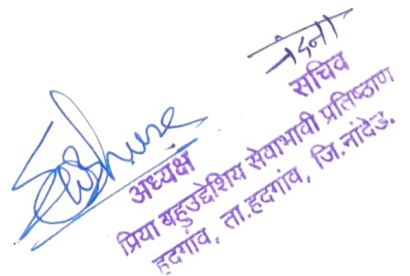 सचिव
अध्यक्ष
प्रिया बहुउद्देशिय सेवाभावी प्रतिष्ठाण
हदगांव, ता.हदगांव, जि.नांदेड.